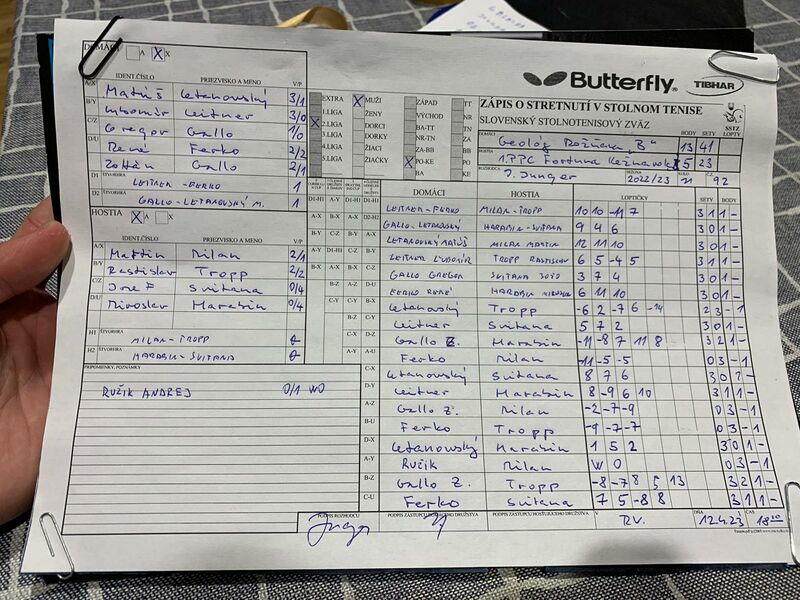 DOMÁCI A X X
IDENT.ČÍSLO PRIEZVISKO A MENO V/P
A/X Matúš Letanovský 3/1
B/Y Ľubomír Leitner 3/0
C/Z Gregor Gallo 1/0
D/U René Ferko 2/2
Zoltán Gallo 2/1
D1 ŠTVORHRA LEITNER - FERKO 1
D2 ŠTVORHRA GALLO - LETANOVSKÝ M. 1
HOSTIA X A X
IDENT.ČÍSLO PRIEZVISKO A MENO V/P
A/X Martin Milan 2/1
B/Y Rastislav Tropp 2/2
C/Z Jozef Svitana 0/4
D/U Miroslav Harabin 0/4
H1 ŠTVORHRA MILAN - TROPP 0
H2 ŠTVORHRA HARABIN - SVITANA 0
PRIPOMIENKY, POZNÁMKY
RUŽIK ANDREJ 0/1 WO
Butterfly TIBHAR
EXTRA X MUŽI ZÁPAD TT
1.LIGA ŽENY VÝCHOD NR
X 2.LIGA DORCI BA-TT TN
3.LIGA DORKY NR-TN ZA
4.LIGA ŽIACI ZA-BB BB
5.LIGA ŽIAČKY X PO-KE PO
BA KE
ZÁPIS O STRETNUTÍ V STOLNOM TENISE
SLOVENSKÝ STOLNOTENISOVÝ ZVÄZ
SSTZ
DOMÁCI Geológ Rožňava "B" BODY 13 SETY 41 LOPTY
HOSTIA 1.PPC Fortuna Kežmarok 5 23
ROZHODCA J. Junger SEZÓNA 2022/23 KOLO 21 Č. 92
DOMÁCI HOSTIA LOPTIČKY SETY BODY
D1-H1 LEITNER - FERKO MILAN - TROPP 10 10 -11 7 3 1 1 -
GALLO - LETANOVSKÝ HARABIN - SVITANA 9 4 6 3 0 1 -
A-X LETANOVSKÝ MATÚŠ MILAN MARTIN 12 11 10 3 0 1 -
B-Y LEITNER ĽUBOMÍR TROPP RASTISLAV 6 5 -4 5 3 1 1 -
C-Z GALLO GREGOR SVITANA JOZEF 3 7 4 3 0 1 -
FERKO RENÉ HARABIN MIROSLAV 6 11 10 3 0 1 -
Letanovský Tropp -6 2 -7 6 -14 2 3 - 1
Leitner Svitana 5 7 2 3 0 1 -
Gallo Z. Harabin -11 -8 7 11 8 3 2 1 -
Ferko Milan -11 -5 -5 0 3 - 1
C-X Letanovský Svitana 8 7 6 3 0 1 -
D-Y Leitner Harabin 8 -9 6 10 3 1 1 -
A-Z Gallo Z. Milan -2 -7 -9 0 3 - 1
B-U Ferko Tropp -9 -7 -7 0 3 - 1
D-X Letanovský Harabin 1 5 2 3 0 1 -
A-Y Ružik Milan W O 0 3 - 1
B-Z Gallo Z. Tropp -8 -7 8 5 13 3 2 1 -
C-U Ferko Svitana 7 5 -8 8 3 1 1 -
PODPIS ROZHODCU PODPIS ZÁSTUPCU DOMÁCEHO DRUŽSTVA PODPIS ZÁSTUPCU HOSŤUJÚCEHO DRUŽSTVA V RV. DŇA 12.4.23 ČAS 18 20